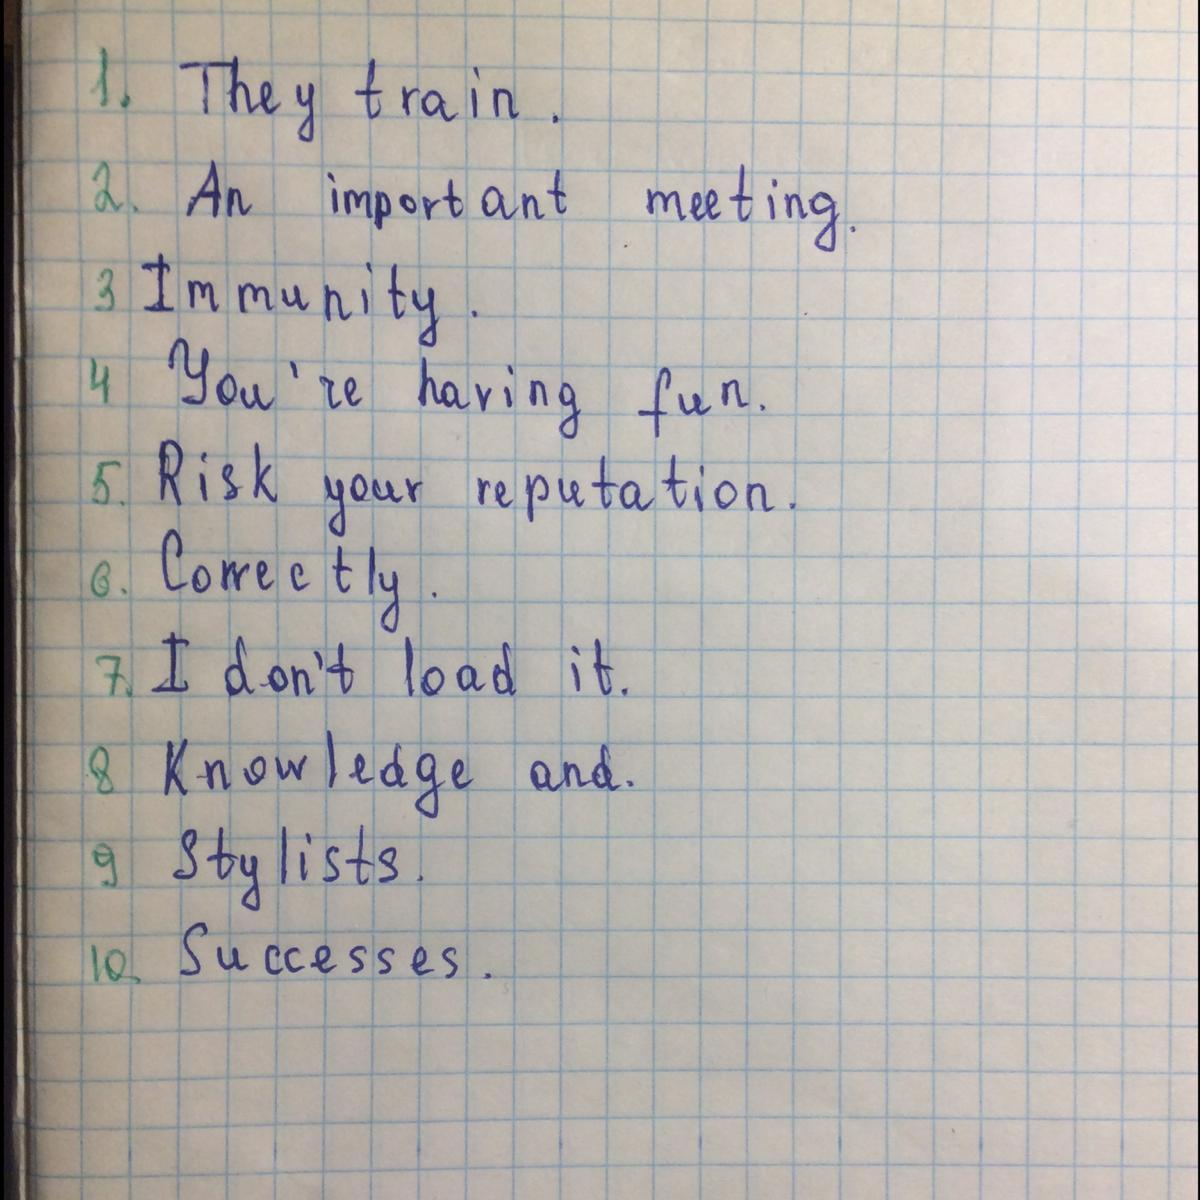 1. They train.
2. An important meeting.
3 Immunity.
4 You're having fun.
5. Risk your reputation.
6. Correctly.
7. I don't load it.
8 Knowledge and.
9 Stylists.
10. Successes.